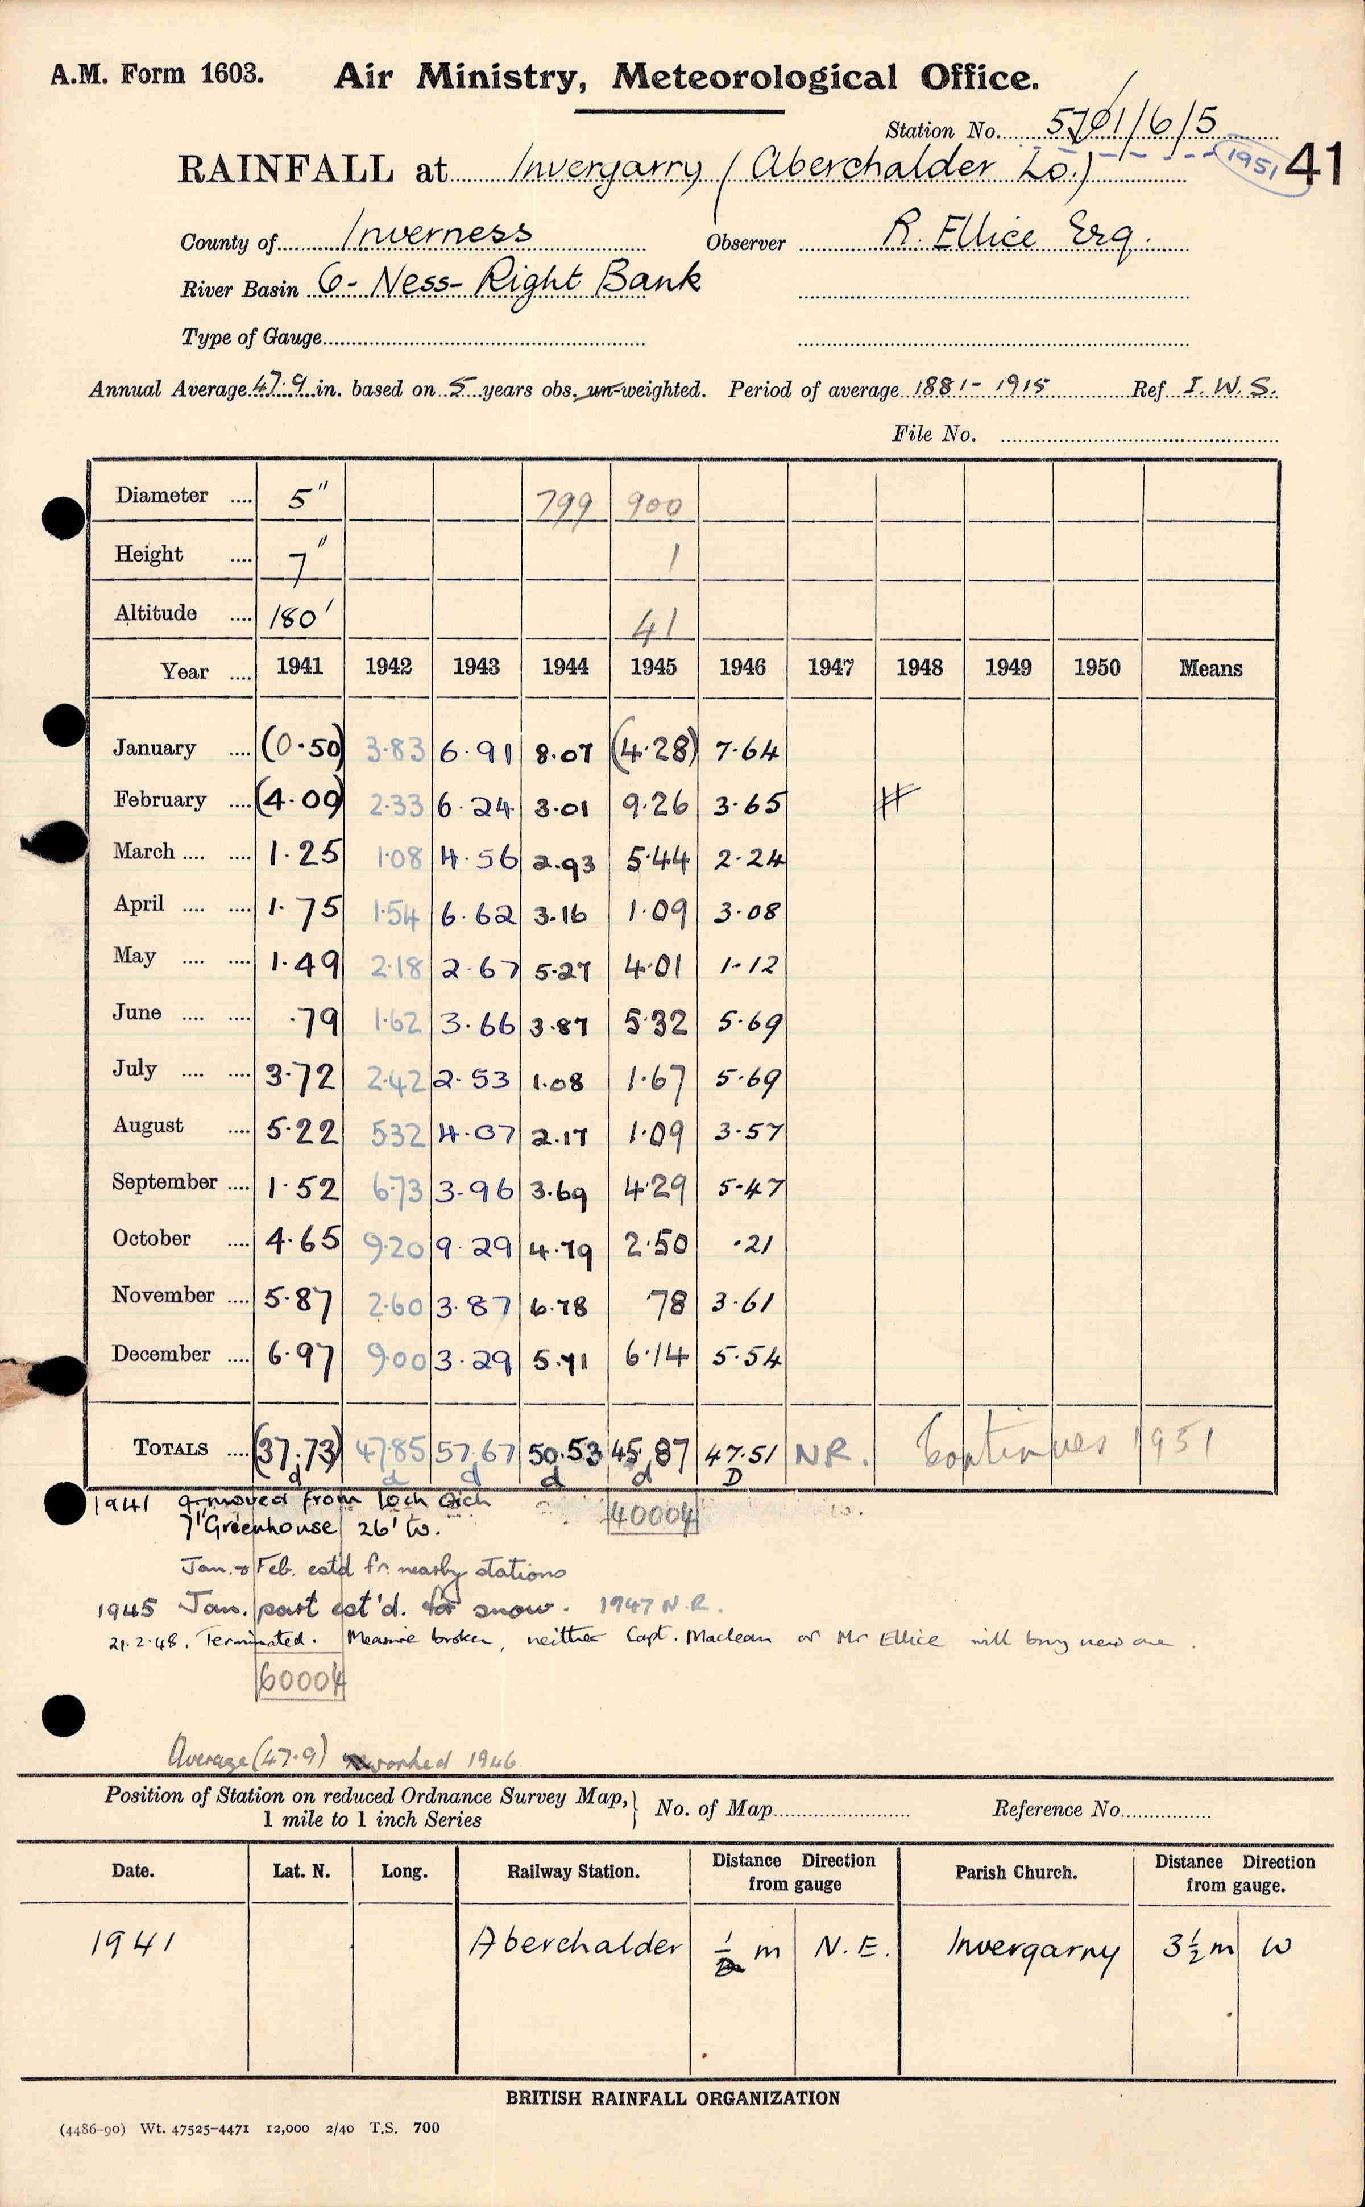 A.M. Form 1603. Air Ministry, Meteorological Office.
Station No. 5701/6/5
RAINFALL at Invergarry (Aberchalder Lo.) 1951 41
County of Inverness Observer R. Ellice Esq.
River Basin 6 - Ness - Right Bank
Type of Gauge
Annual Average 47.9 in. based on 5 years obs. un-weighted. Period of average 1881 - 1915 Ref I. W. S.
File No.
Diameter .... 5" 799 900
Height .... 7" 1
Altitude .... 180' 41
Year .... 1941 1942 1943 1944 1945 1946 1947 1948 1949 1950 Means
January .... (0.50) 3.83 6.91 8.07 (4.28) 7.64
February .... (4.00) 2.33 6.24 3.01 9.26 3.65 #
March .... .... 1.25 1.08 4.56 2.93 5.44 2.24
April .... .... 1.75 1.54 6.62 3.16 1.09 3.08
May .... .... 1.49 2.18 2.67 5.27 4.01 1.12
June .... .... .79 1.62 3.66 3.87 5.32 5.69
July .... .... 3.72 2.42 2.53 1.08 1.67 5.69
August .... 5.22 5.32 4.07 2.17 1.09 3.57
September .... 1.52 6.73 3.96 3.69 4.29 5.47
October .... 4.65 9.20 9.29 4.79 2.50 .21
November .... 5.87 2.60 3.87 6.78 78 3.61
December .... 6.97 9.00 3.29 5.71 6.14 5.54
TOTALS .... (37.73) 47.85 57.67 50.53 45.87 47.51 NR. Continues 1951
d d d d d D
1941 G moved from Loch Oich 40004
7" Greenhouse 26' W.
Jan. & Feb. est'd fr. nearby stations
1945 Jan. part est'd. for snow. 1947 N.R.
21.2.48. Terminated. Measure broken, neither Capt. Maclean or Mr Ellice will buy new one.
60004
Average (47.9) worked 1946
Position of Station on reduced Ordnance Survey Map, 1 mile to 1 inch Series No. of Map Reference No.
Date. Lat. N. Long. Railway Station. Distance Direction from gauge Parish Church. Distance Direction from gauge.
1941 Aberchalder m N.E. Invergarry 3½ m W
BRITISH RAINFALL ORGANIZATION
(4486-90) Wt. 47525-4471 12,000 2/40 T.S. 700